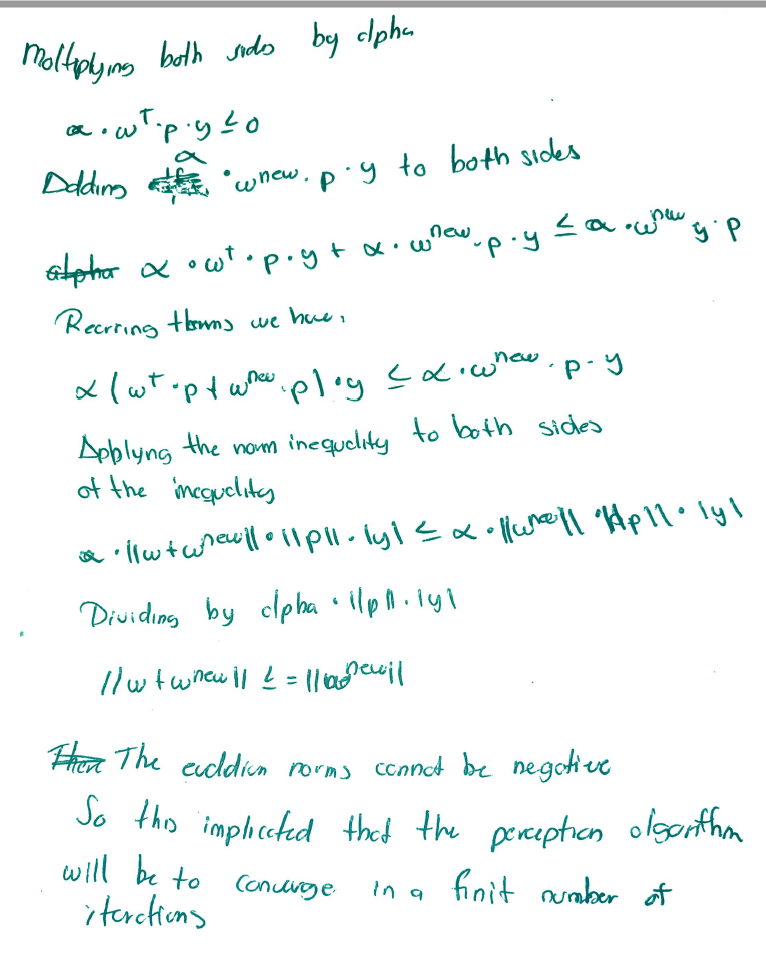 Moltiplying both sides by alpha
α · w^T · p · y ≤ 0
Adding α · w^new · p · y to both sides
α · w^t · p · y + α · w^new · p · y ≤ α · w^new y · p
Recrring therms we have:
α (w^t · p + w^new · p) · y ≤ α · w^new · p · y
Applyng the norm inequality to both sides
of the inequality
α · ||w + w^new|| · ||p|| · |y| ≤ α · ||w^new|| · ||p|| · |y|
Dividing by alpha · ||p|| · |y|
||w + w^new|| ≤ = ||w^new||
The euclidian norms cannot be negative
So this implicated that the perception algorithm
will be to converge in a finit number of
iterations